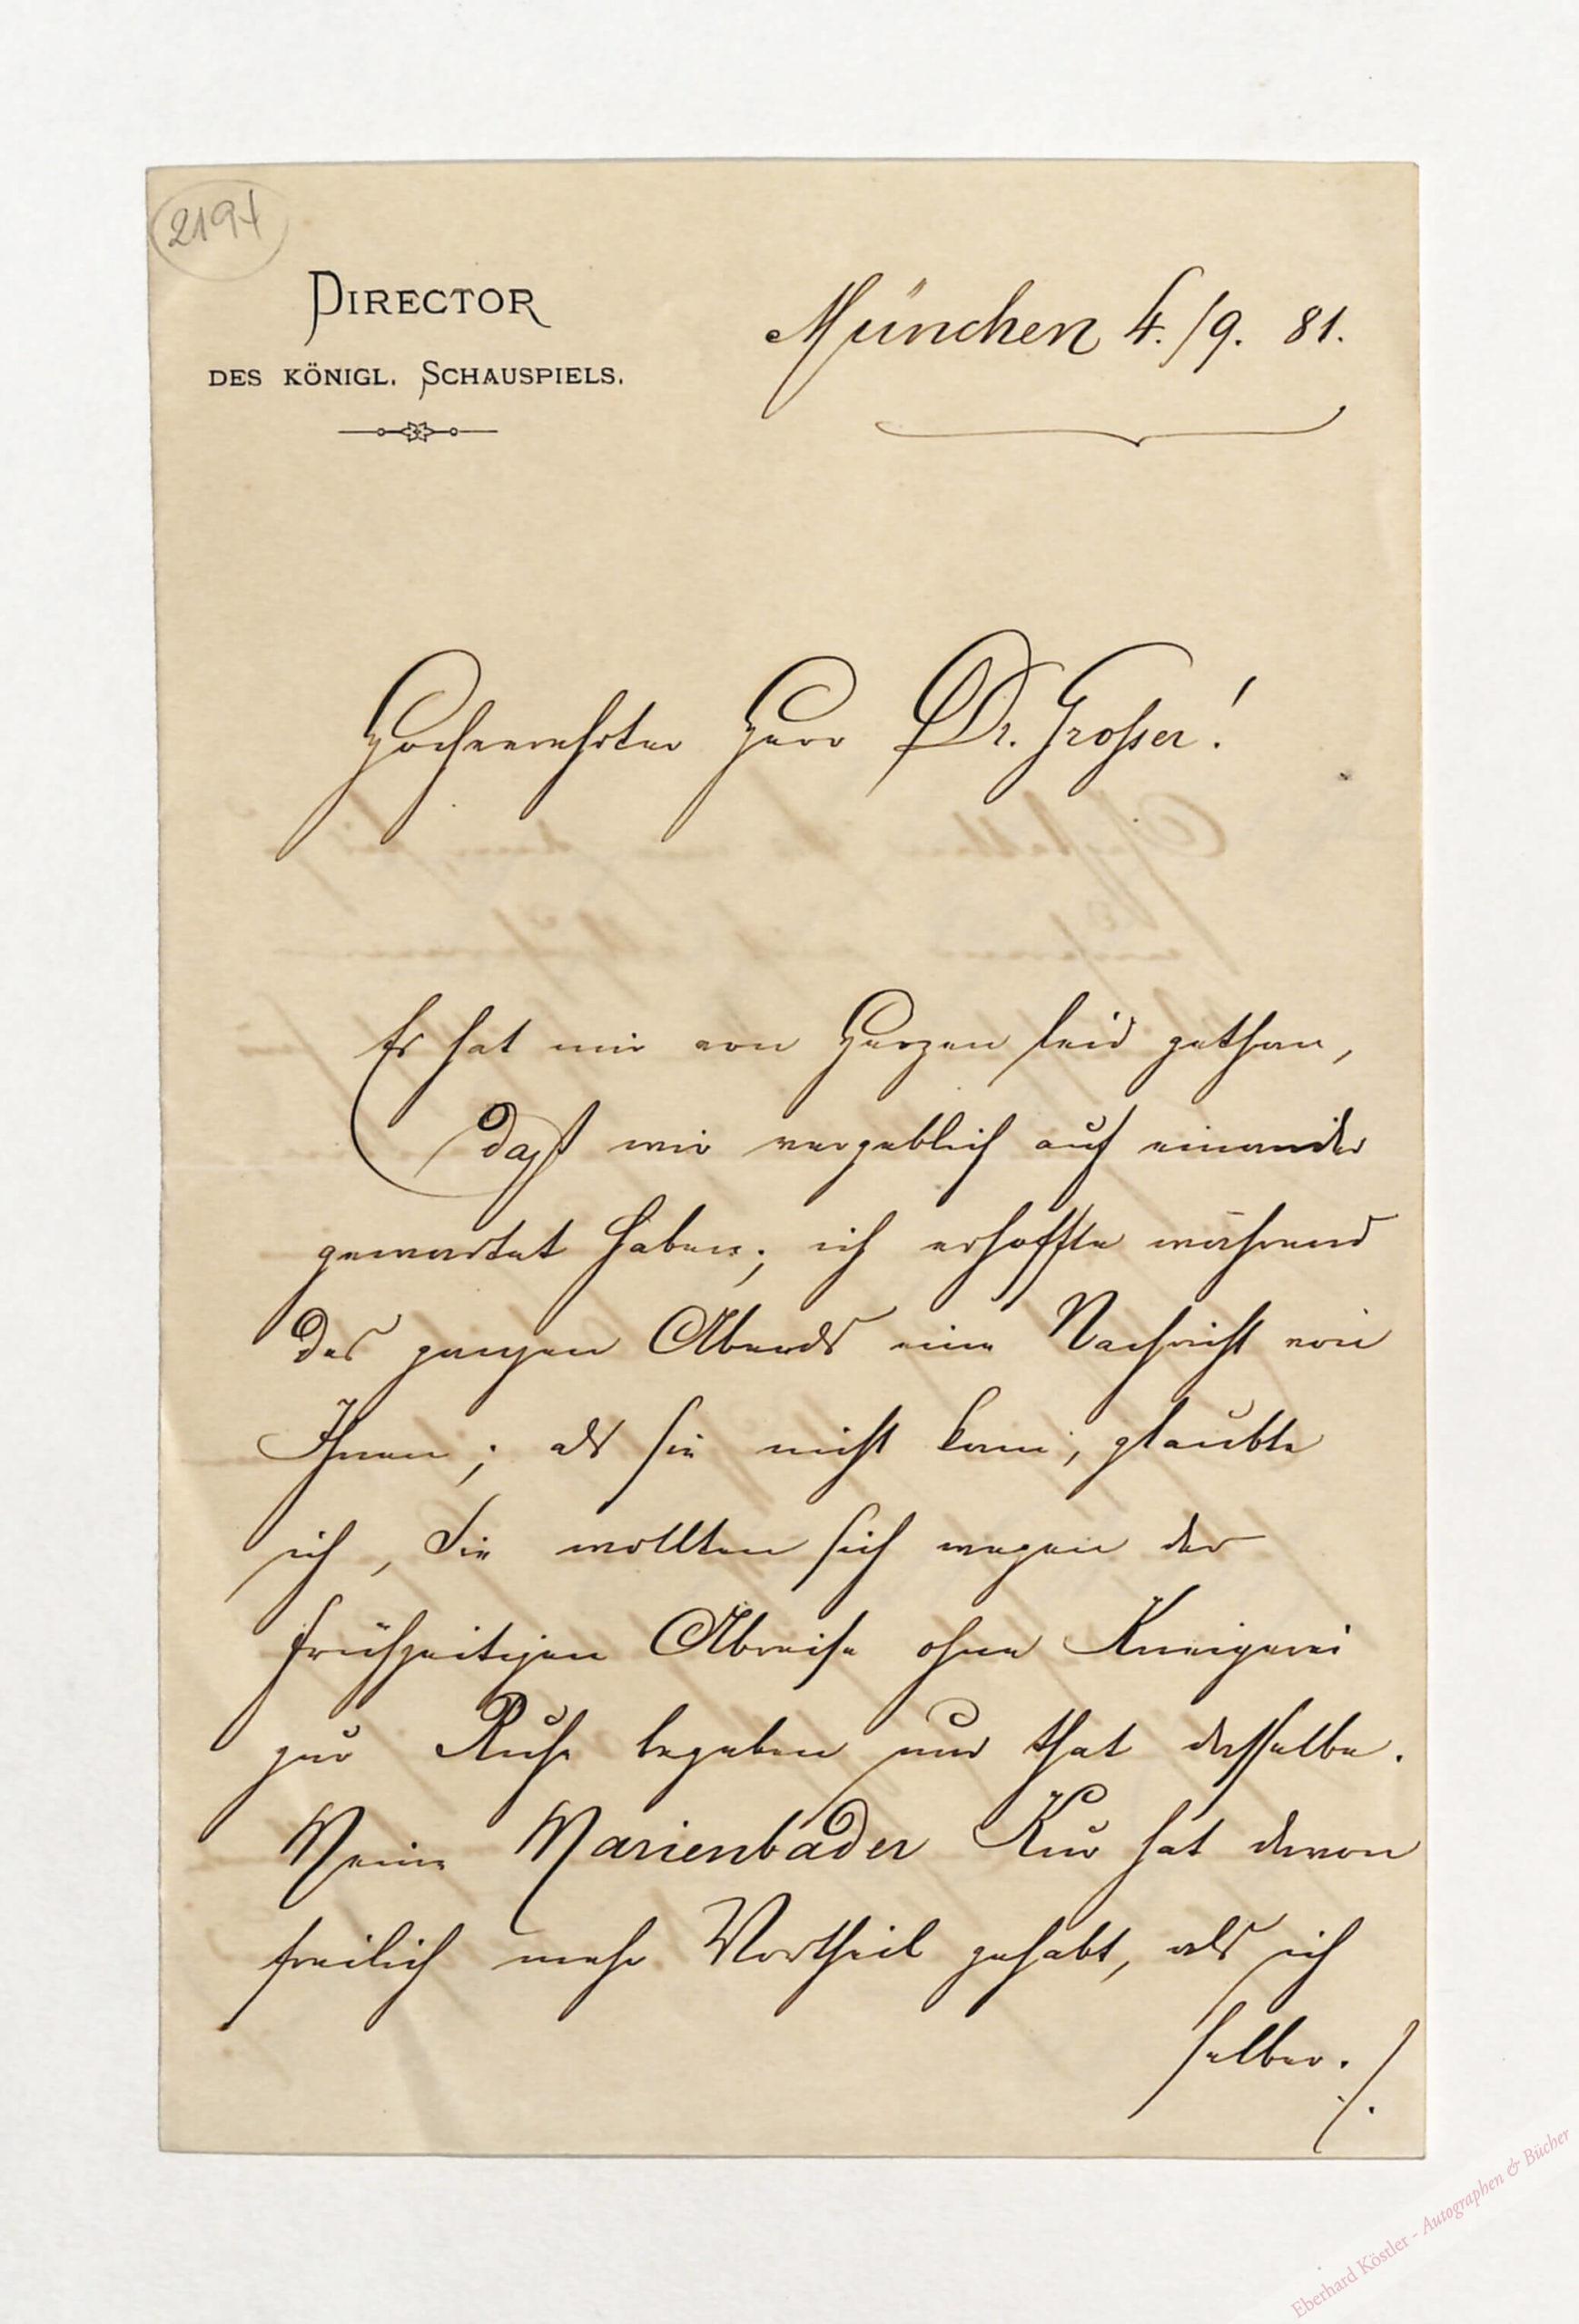 2194
DIRECTOR
DES KÖNIGL. SCHAUSPIELS.
München 4./9. 81.
Hochverehrter Herr Dr. Grosser!
Es hat mir von Herzen leid gethan,
daß wir vergeblich auf einander
gewartet haben; ich erhoffte während
des ganzen Abends eine Nachricht von
Ihnen; als sie nicht kam, glaubte
ich, Sie wollten sich wegen der
frühzeitigen Abreise ohne Kneiperei
zur Ruhe begeben und that desselbe.
Meine Marienbader Kur hat davon
freilich mehr Vortheil gehabt, als ich
selber. ./.
Eberhard Köstler - Autographen & Bücher